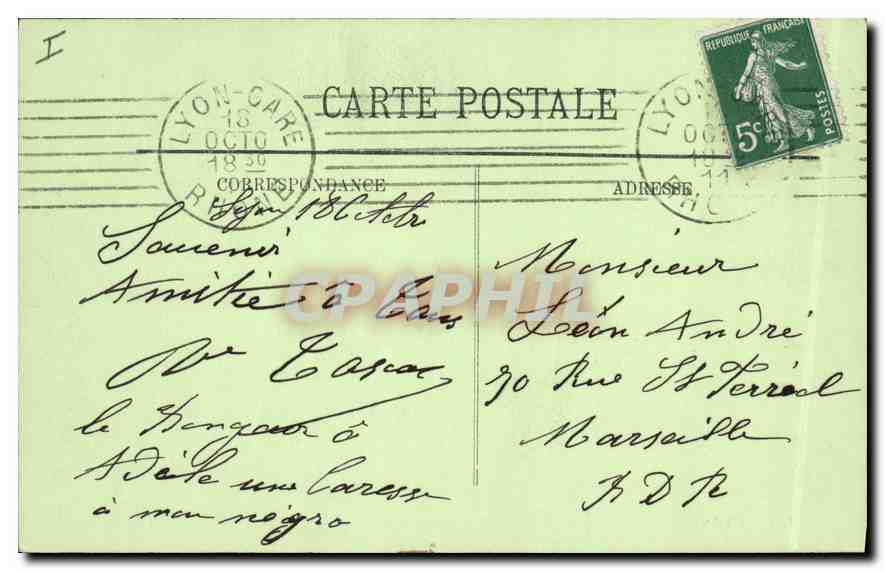 I
CARTE POSTALE
LYON-GARE
18
OCTO
18 30
RHONE
LYON
OC
18
11
RHO
REPUBLIQUE FRANÇAISE
POSTES
5c
CORRESPONDANCE
ADRESSE
Lyon 18 Octobr
Souvenir
Amitié à tous
CPAPHIL
le
à
Adèle une Caresse
à mon négro
Monsieur
Léon André
Rue St
Marseille
BDR